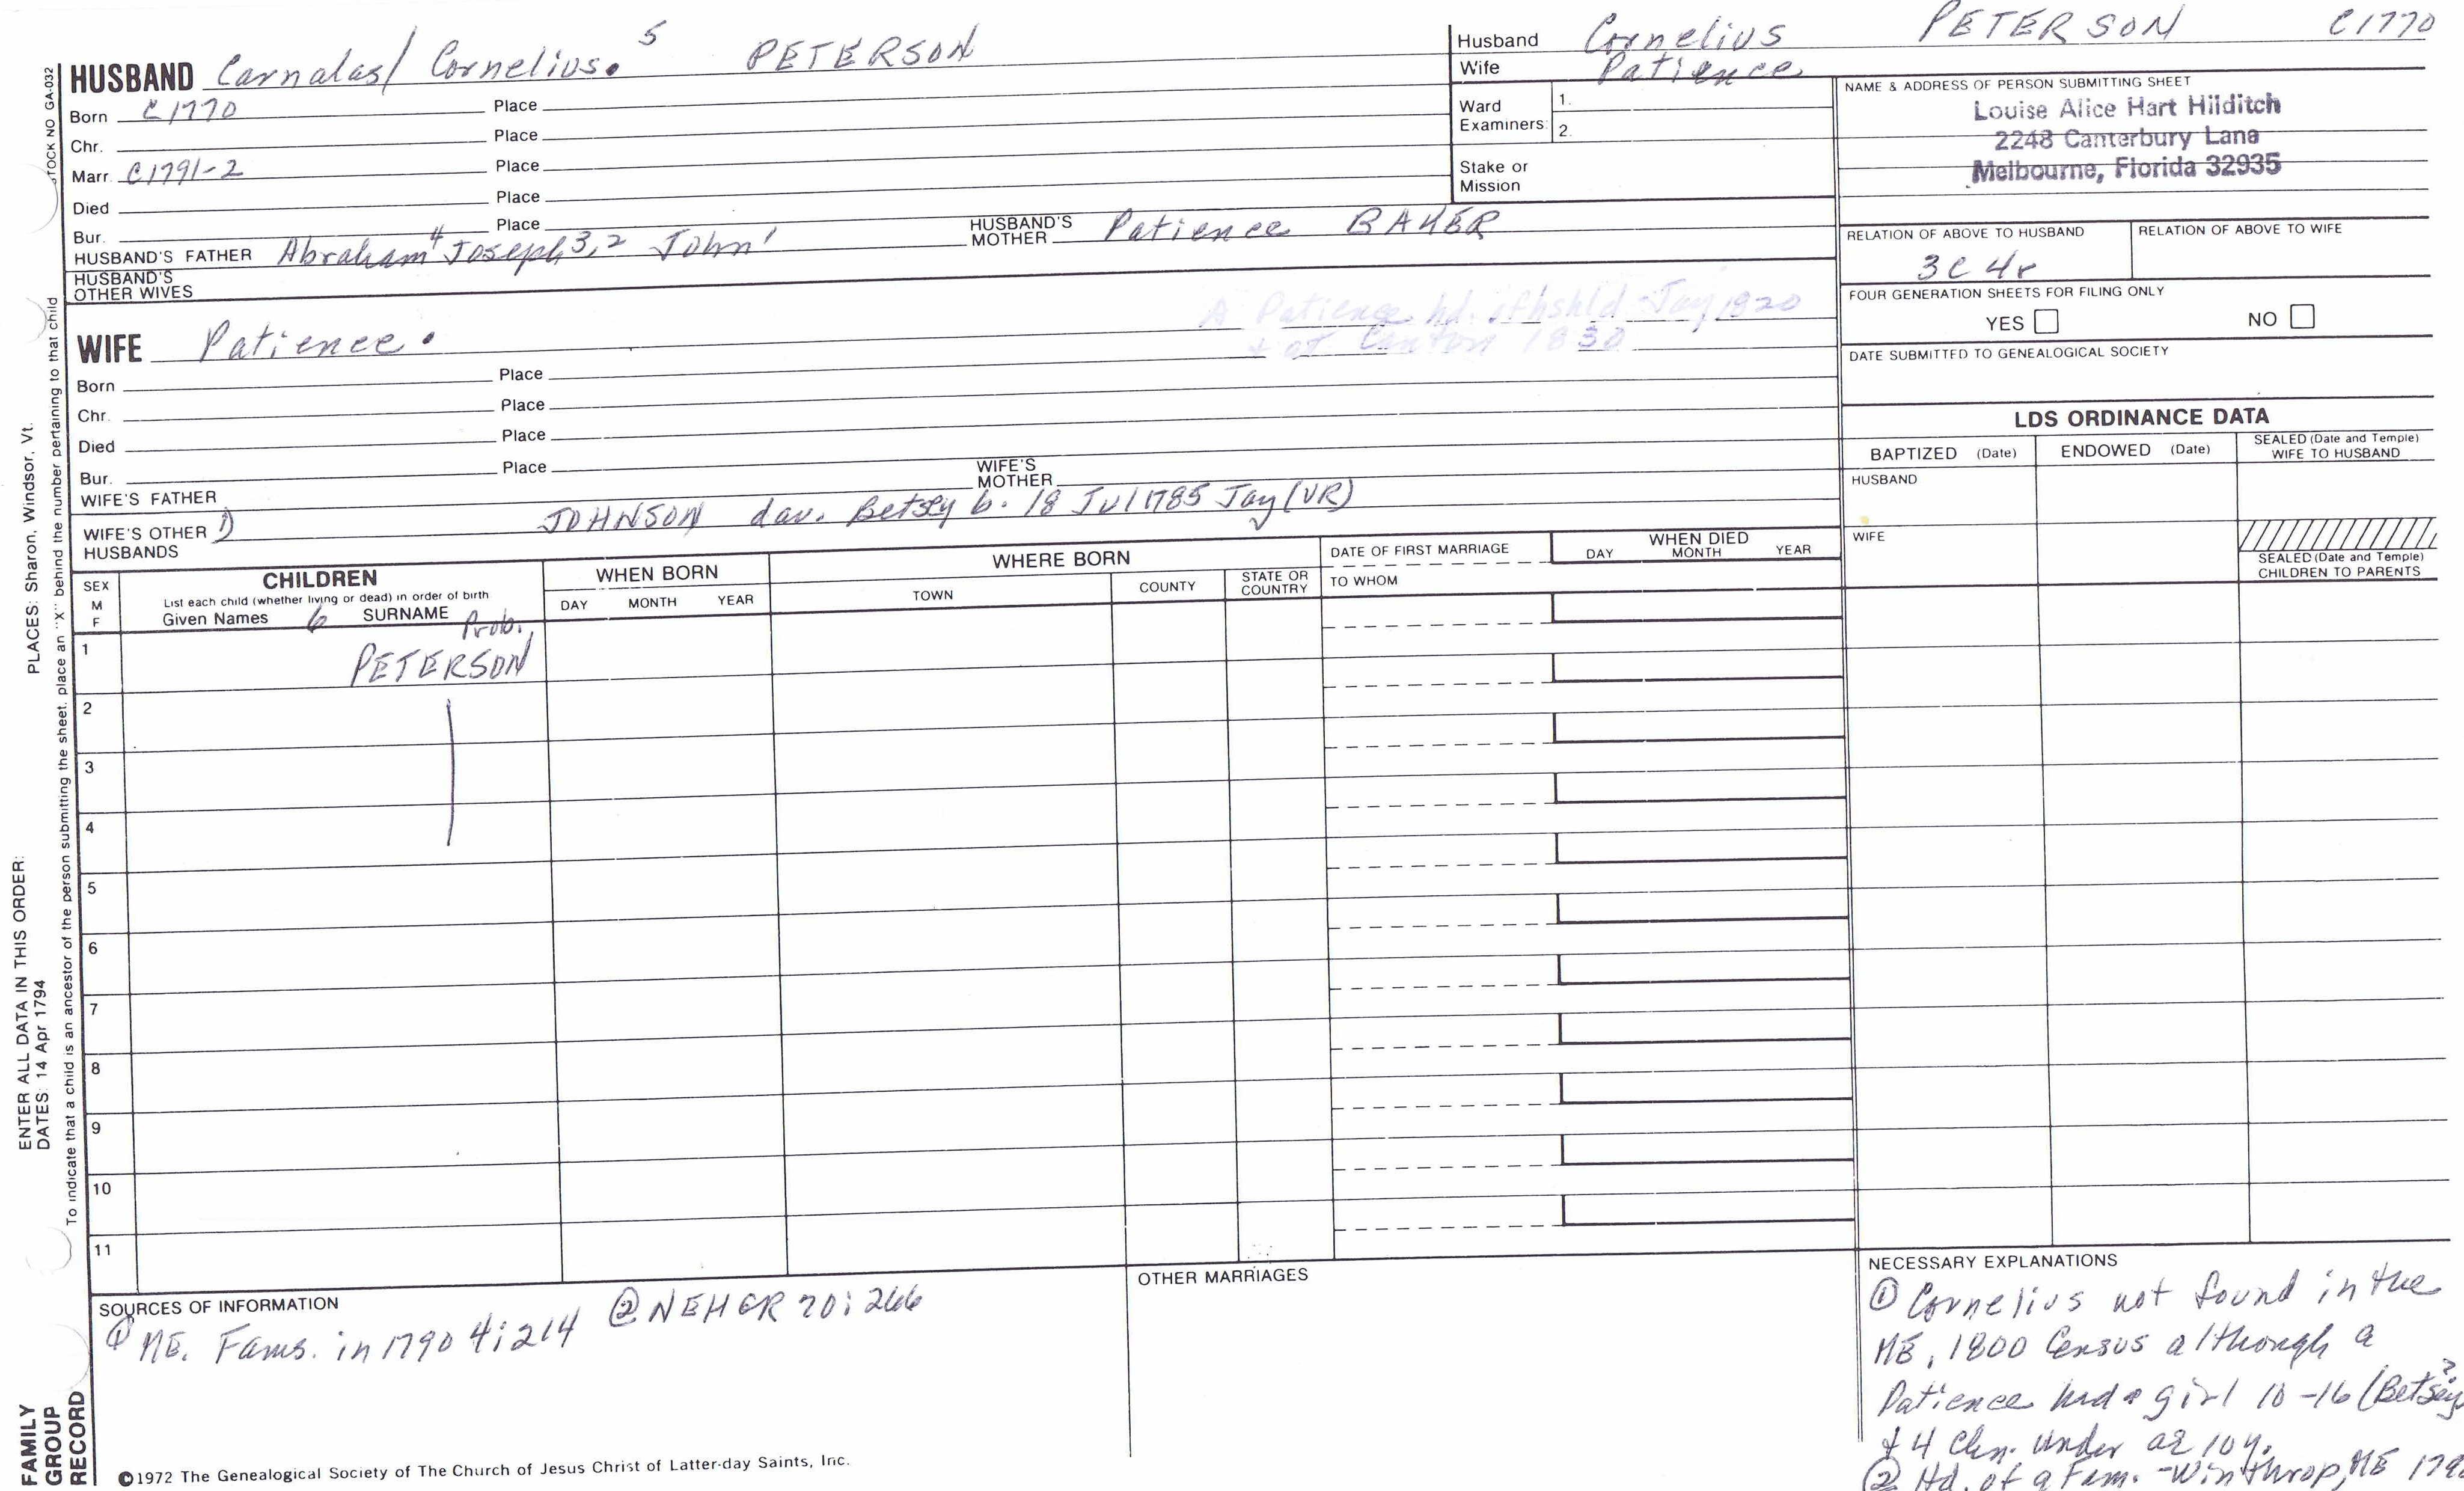 HUSBAND Carnalas/ Cornelius. 5 PETERSON
Born C1770 Place
Chr. Place
Marr. C1791-2 Place
Died Place
Bur. Place
HUSBAND'S FATHER Abraham 4 Joseph 3,2 John 1 HUSBAND'S MOTHER Patience BAKER
HUSBAND'S OTHER WIVES
Husband Cornelius PETERSON C1770
Wife Patience
Ward Examiners: 1.
2.
Stake or Mission
NAME & ADDRESS OF PERSON SUBMITTING SHEET
Louise Alice Hart Hilditch
2248 Canterbury Lane
Melbourne, Florida 32935
RELATION OF ABOVE TO HUSBAND
3C 4r
RELATION OF ABOVE TO WIFE
FOUR GENERATION SHEETS FOR FILING ONLY
YES NO
DATE SUBMITTED TO GENEALOGICAL SOCIETY
A Patience hd. of hshld Jay 1820
+ of Canton 1830
WIFE Patience.
Born Place
Chr. Place
Died Place
Bur. Place
WIFE'S FATHER WIFE'S MOTHER
WIFE'S OTHER HUSBANDS 1) JOHNSON dau. Betsey b. 18 Jul 1785 Jay (VR)
LDS ORDINANCE DATA
BAPTIZED (Date) ENDOWED (Date) SEALED (Date and Temple) WIFE TO HUSBAND
HUSBAND
WIFE
SEALED (Date and Temple) CHILDREN TO PARENTS
SEX M F
CHILDREN
List each child (whether living or dead) in order of birth
Given Names 6 SURNAME
WHEN BORN
DAY MONTH YEAR
WHERE BORN
TOWN COUNTY STATE OR COUNTRY
DATE OF FIRST MARRIAGE
TO WHOM
WHEN DIED
DAY MONTH YEAR
1 Prob. PETERSON
2
3
4
5
6
7
8
9
10
11
SOURCES OF INFORMATION
① ME. Fams. in 1790 4:214 ② NEHGR 70:266
OTHER MARRIAGES
NECESSARY EXPLANATIONS
① Cornelius not found in the
ME, 1800 Census although a
Patience had a girl 10-16 (Betsey?
+ 4 chn. under ae 10y.
② Hd. of a Fam. - Winthrop, ME
©1972 The Genealogical Society of The Church of Jesus Christ of Latter-day Saints, Inc.
STOCK NO GA-032
To indicate that a child is an ancestor of the person submitting the sheet, place an "X" behind the number pertaining to that child
ENTER ALL DATA IN THIS ORDER:
DATES: 14 Apr 1794
PLACES: Sharon, Windsor, Vt.
FAMILY GROUP RECORD